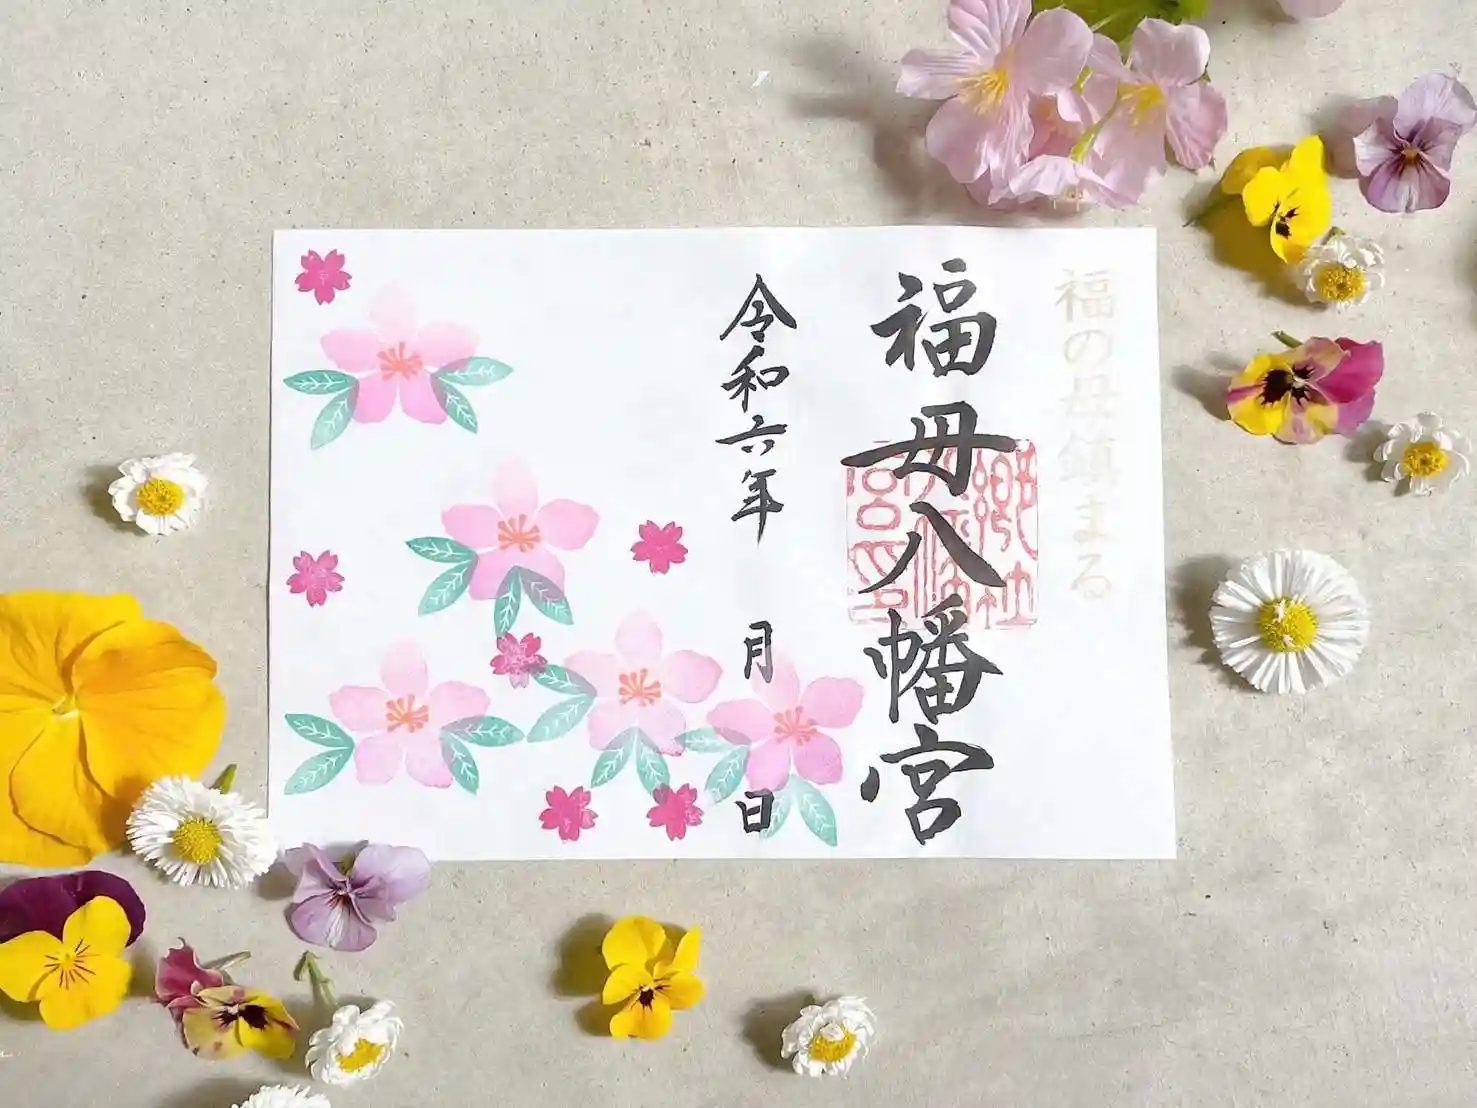 福の母鎮まる
福母八幡宮
令和六年 月 日